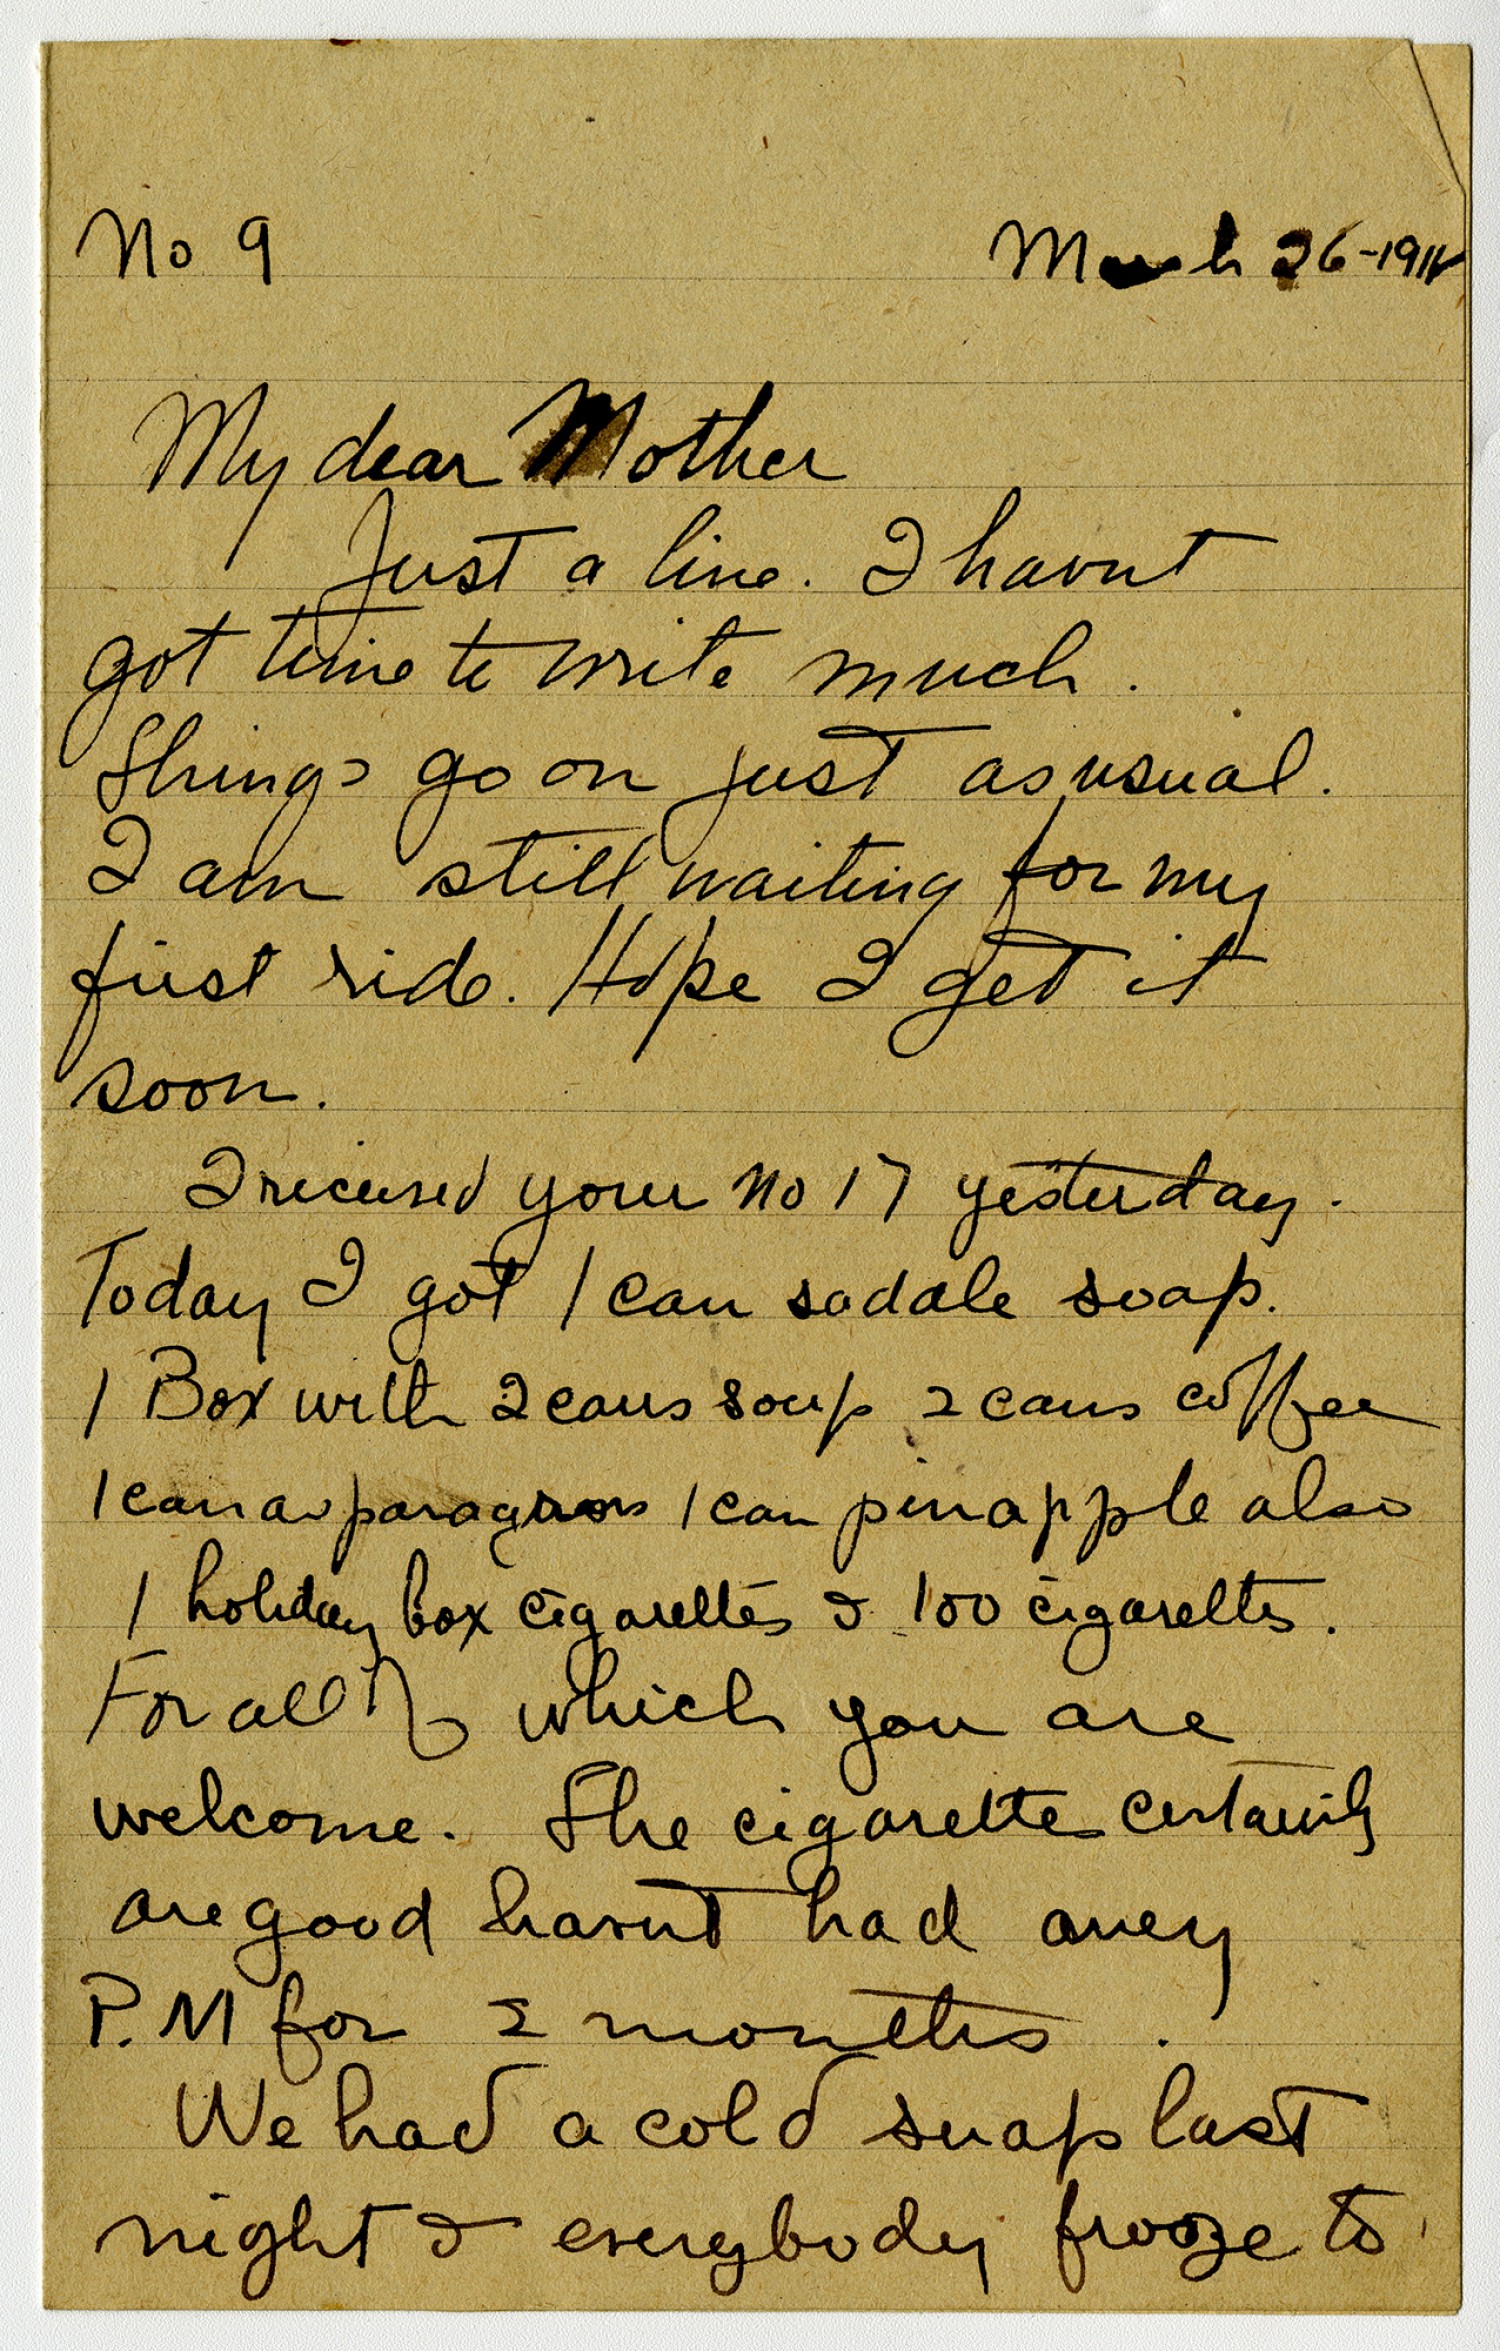 No 9 March 26-191
My dear Mother
Just a line. I havnt
got time to write much.
Things go on just as usual.
I am still waiting for my
first ride. Hope I get it
soon.
I received your No 17 yesterday.
Today I got 1 can saddle soap.
1 Box with 2 cans soup 2 cans coffee
1 can asparagras 1 can pinapple also
1 holiday box cigarettes & 100 cigarettes.
For all of which you are
welcome. The cigarette certainly
are good havnt had aney
P.M for 2 months.
We had a cold snap last
night & everybody frooze to